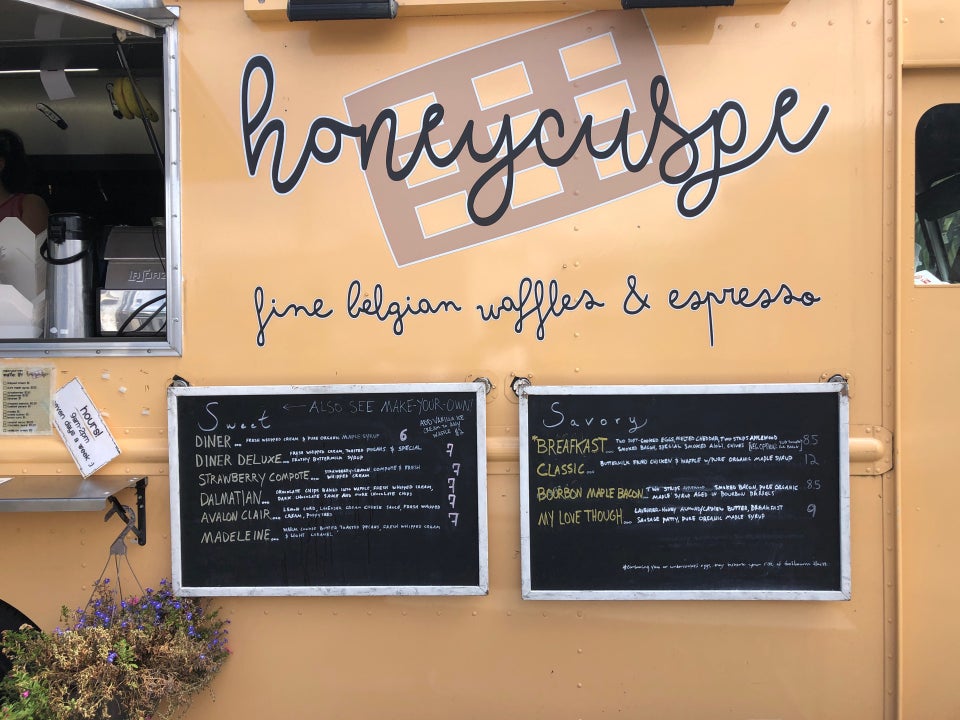 honeycuspe
fine belgian waffles & espresso
hours!
9am-2pm
seven days a week :)
Sweet ← ALSO SEE MAKE-YOUR-OWN!
ADD VANILLA ICE
CREAM TO ANY
WAFFLE $2
DINER... FRESH WHIPPED CREAM & PURE ORGANIC MAPLE SYRUP 6
DINER DELUXE... FRESH WHIPPED CREAM, TOASTED PECANS & SPECIAL 7
BUTTERMILK SYRUP
STRAWBERRY COMPOTE... STRAWBERRY COMPOTE & FRESH 7
WHIPPED CREAM
DALMATIAN... CHOCOLATE CHIPS BAKED INTO WAFFLE FRESH WHIPPED CREAM, 7
DARK CHOCOLATE SAUCE AND MORE CHOCOLATE CHIPS
AVALON CLAIR... LEMON CURD, LAVENDER CREAM CHEESE SAUCE, FRESH WHIPPED 7
CREAM, POPPYSEED
MADELEINE... WARM COOKIE BUTTER, TOASTED PECANS, FRESH WHIPPED CREAM 7
& LIGHT CARAMEL
Savory
*BREAKFAST... TWO SOFT-COOKED EGGS, MELTED CHEDDAR, TWO STRIPS APPLEWOOD 8.5
SMOKED BACON, SPECIAL SMOKED AIOLI, CHIVES
CLASSIC... BUTTERMILK FRIED CHICKEN & WAFFLE W/PURE ORGANIC MAPLE SYRUP 12
BOURBON MAPLE BACON... TWO STRIPS APPLEWOOD SMOKED BACON, PURE ORGANIC 8.5
MAPLE SYRUP AGED IN BOURBON BARRELS
MY LOVE THOUGH... LAVENDER-HONEY ALMOND/CASHEW BUTTER, BREAKFAST 9
SAUSAGE PATTY, PURE ORGANIC MAPLE SYRUP
*Consuming raw or undercooked eggs may increase your risk of foodborne illness